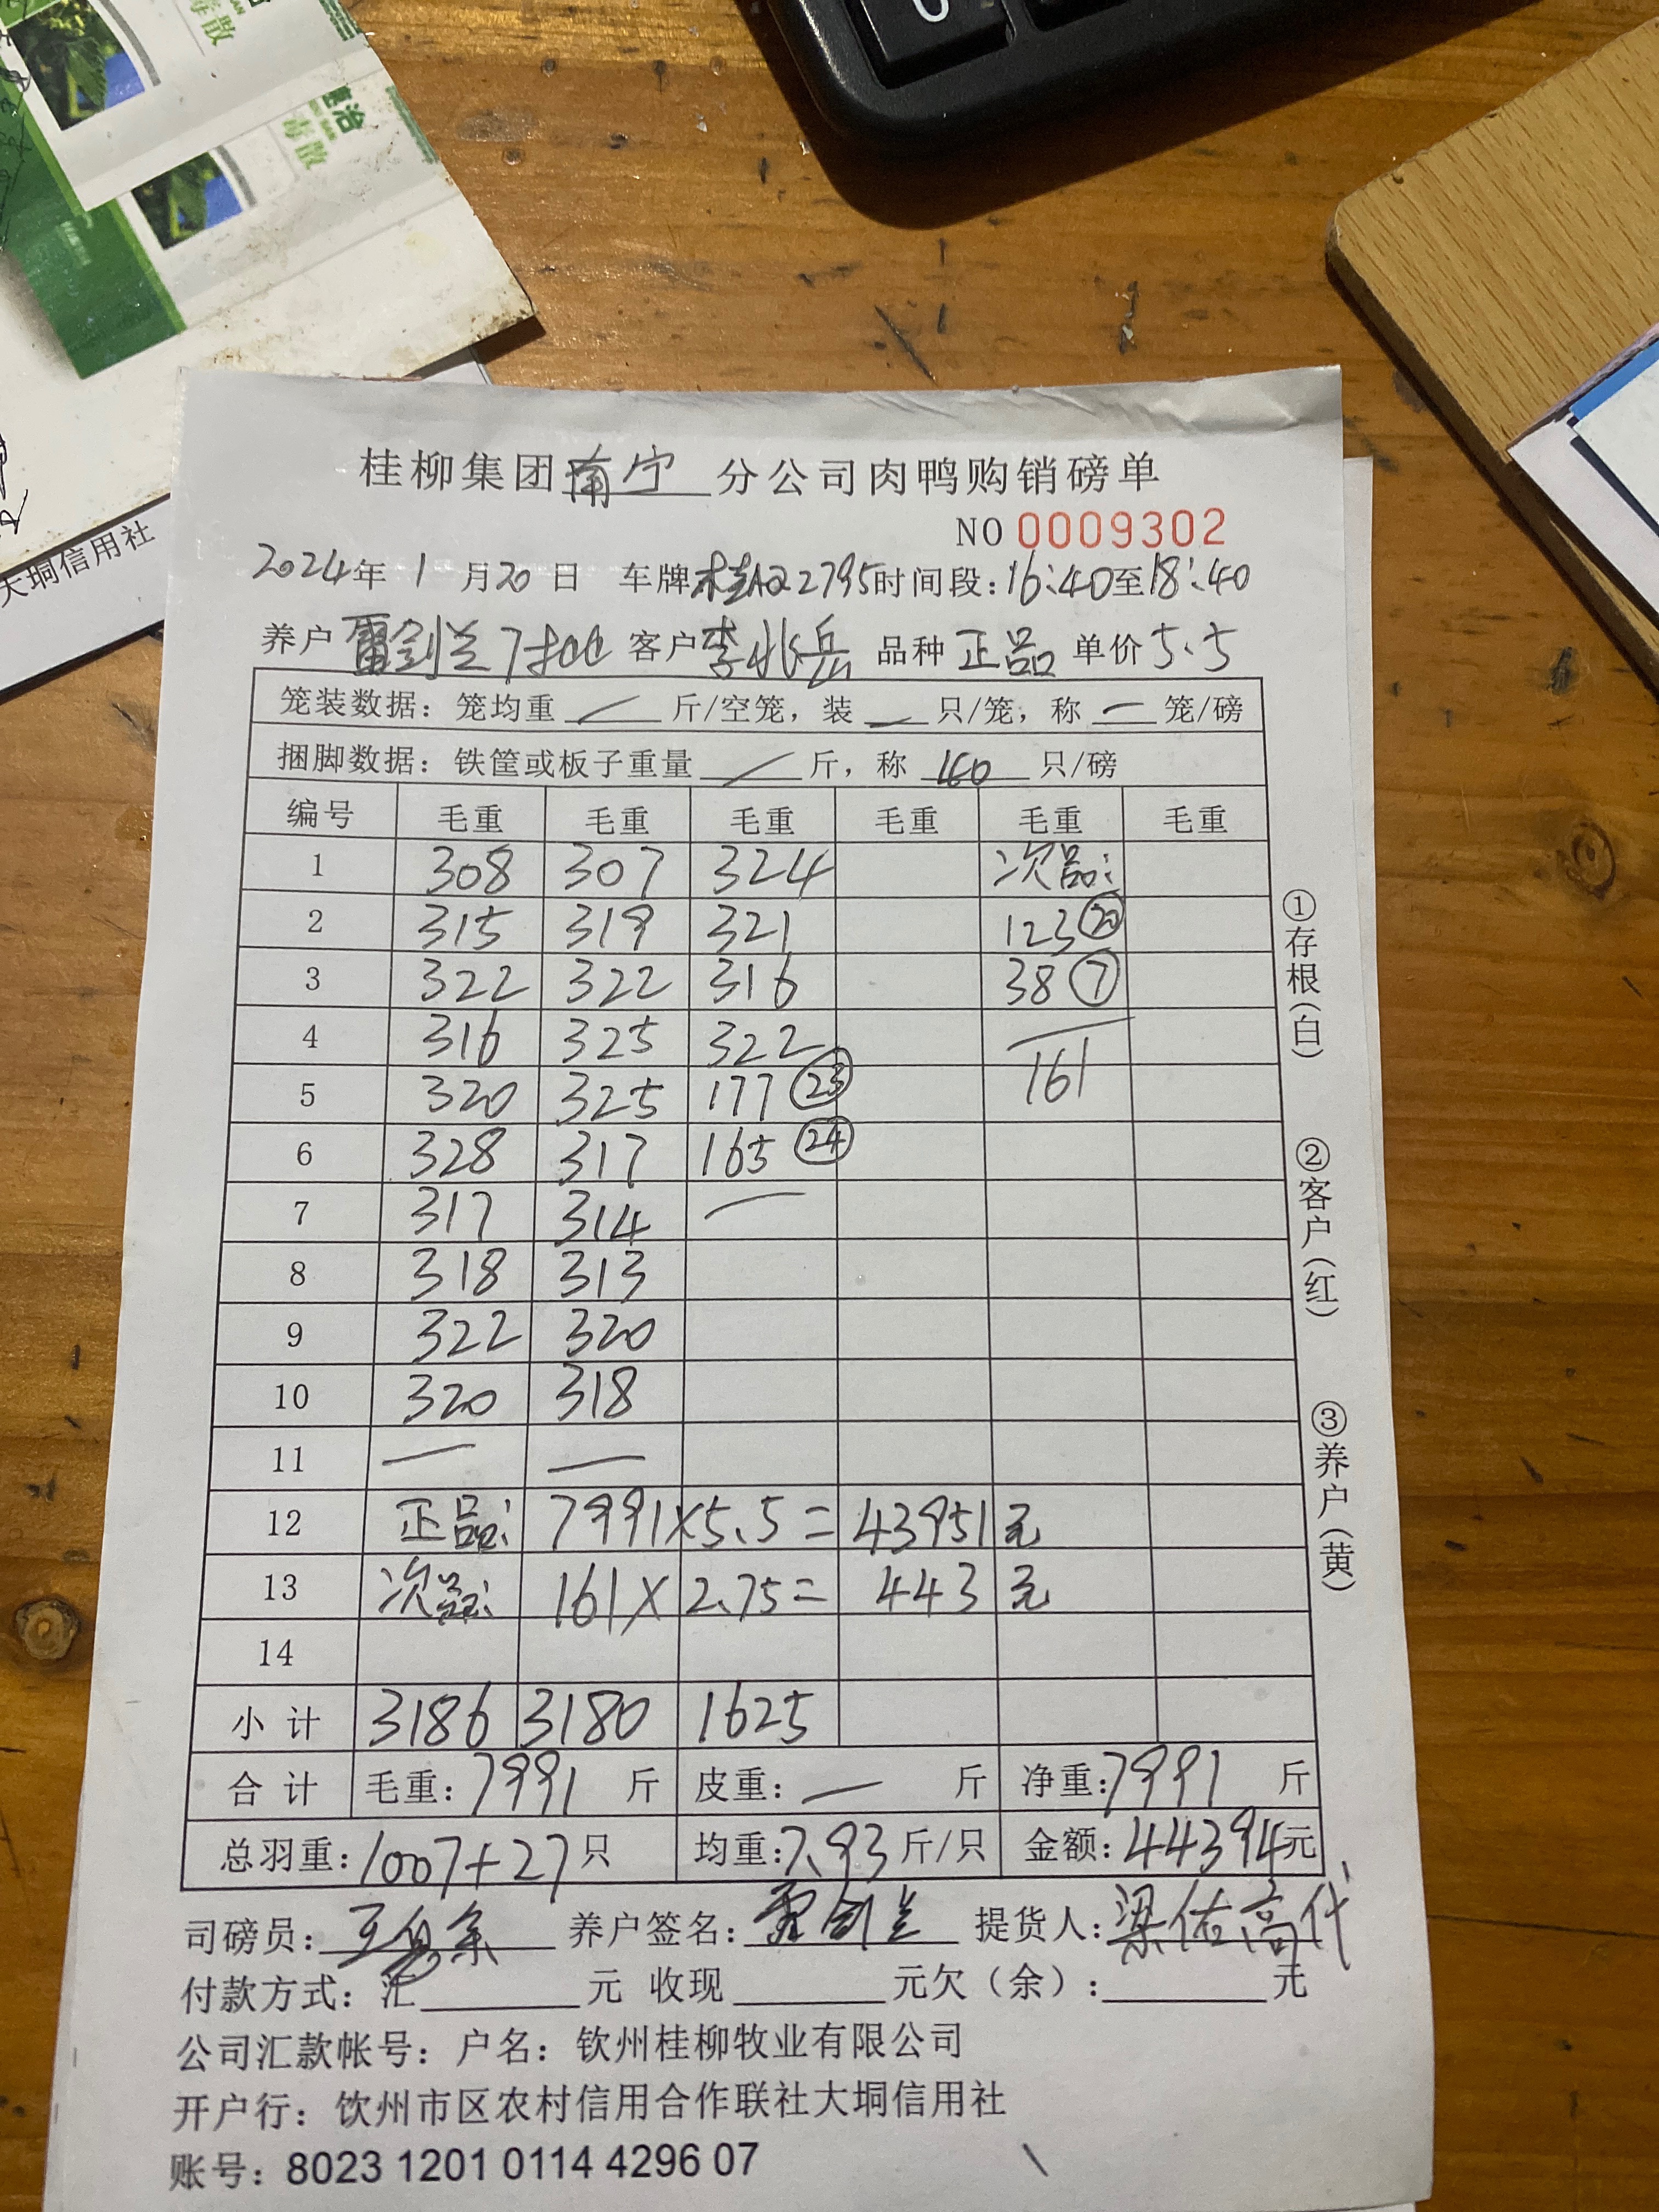 毒散
惠治
毒散
大垌信用社
桂柳集团南宁分公司肉鸭购销磅单
NO 0009302
2024年 1 月20日 车牌桂AQ2795时间段:16:40至18:40
养户 雷剑兰 客户李兆岳 品种 正品 单价5.5
笼装数据: 笼均重 — 斤/空笼, 装 — 只/笼, 称 — 笼/磅
捆脚数据: 铁筐或板子重量 — 斤, 称 160 只/磅
编号 毛重 毛重 毛重 毛重 毛重 毛重
1 308 307 324 次品:
2 315 319 321 123 ⑳
3 322 322 316 38 ⑦
4 316 325 322
5 320 325 177 ㉓ 161
6 328 317 165 ㉔
7 317 314 —
8 318 313
9 322 320
10 320 318
11 — —
12 正品: 7991×5.5= 43951元
13 次品: 161×2.75= 443元
14
小计 3186 3180 1625
合计 毛重:7991 斤 皮重: — 斤 净重:7991 斤
总羽重:1007+27只 均重:7.93斤/只 金额:44394元
司磅员: 养户签名:雷剑兰 提货人:梁佑高代
付款方式: 汇 元 收现 元欠(余): 元
公司汇款帐号: 户名: 钦州桂柳牧业有限公司
开户行: 钦州市区农村信用合作联社大垌信用社
账号: 8023 1201 0114 4296 07
①存根(白)
②客户(红)
③养户(黄)